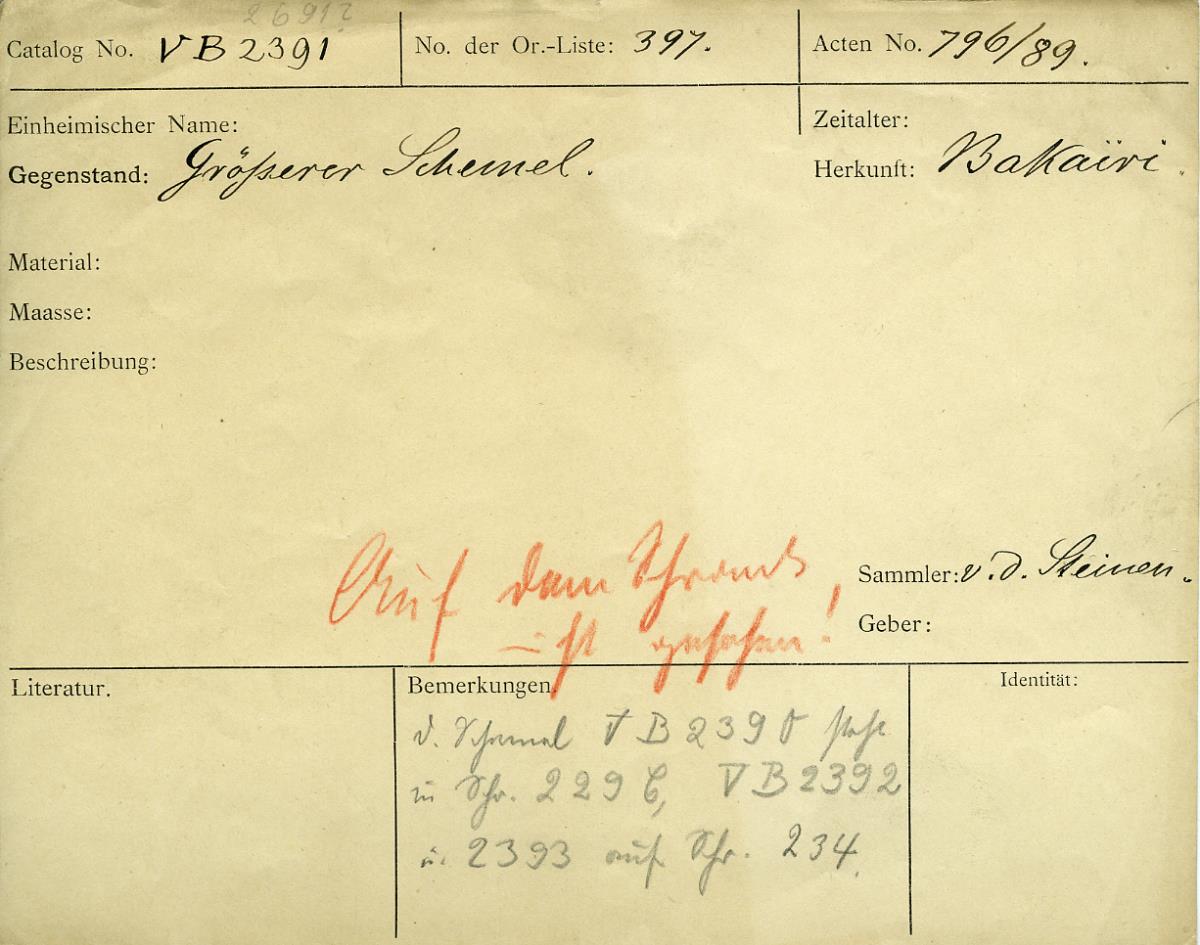 2691?
Catalog No. VB 2391
No. der Or.-Liste: 397.
Acten No. 796/89.
Einheimischer Name:
Zeitalter:
Gegenstand: Größerer Schemel.
Herkunft: Bakaïri.
Material:
Maasse:
Beschreibung:
Auf dem Schrank
Sammler: v. d. Steinen.
ist gesehen!
Geber:
Literatur.
Bemerkungen.
Identität:
d. Schemel VB 2390 steht
in Schr. 229 C, VB 2392
u. 2393 auf Schr. 234.